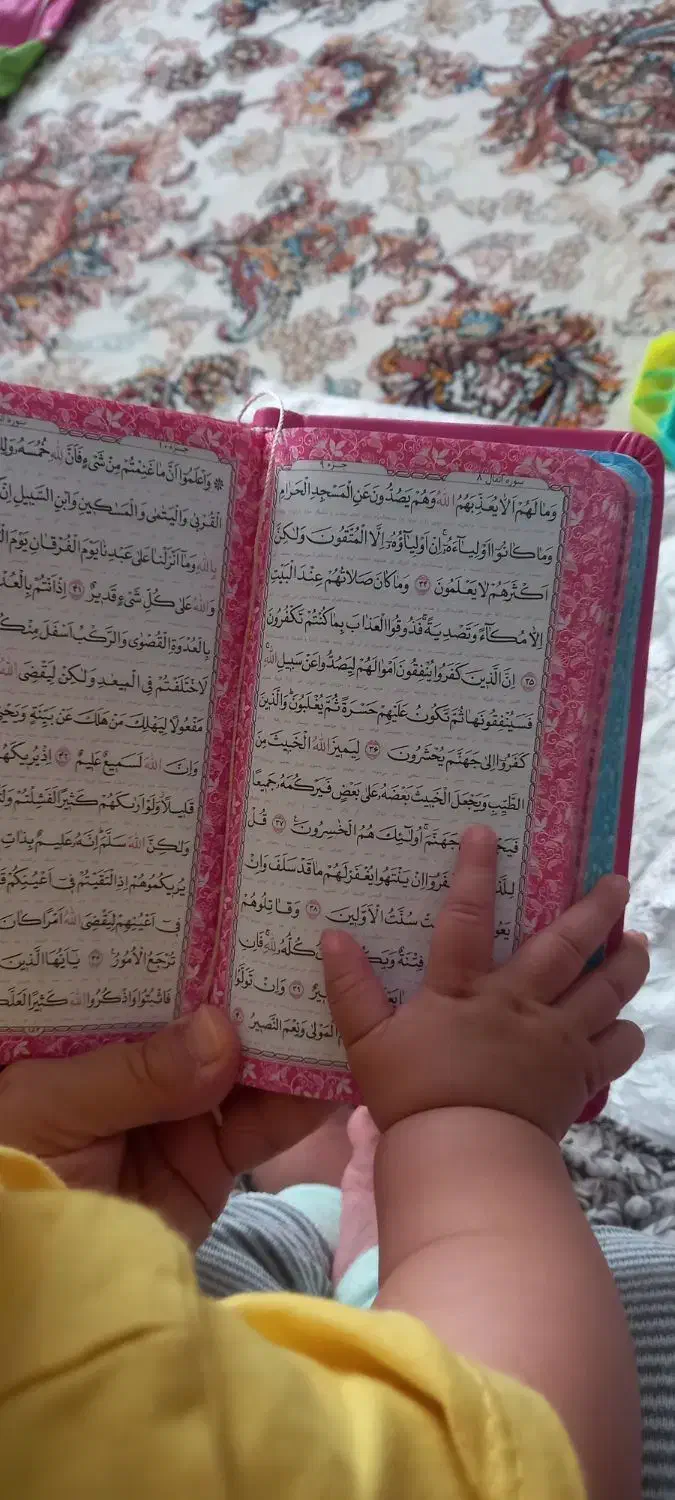 سوره انفال ٨
جزء ٩
وَمَا لَهُمْ اَلّا يُعَذِّبَهُمُ اللهُ وَهُمْ يَصُدُّونَ عَنِ الْمَسْجِدِ الْحَرَامِ
وَمَا كَانُوا اَوْلِيَاءَهُ اِنْ اَوْلِيَاؤُهُ اِلَّا الْمُتَّقُونَ وَلٰكِنَّ
اَكْثَرَهُمْ لَا يَعْلَمُونَ ٣٤ وَمَا كَانَ صَلَاتُهُمْ عِنْدَ الْبَيْتِ
اِلّا مُكَاءً وَتَصْدِيَةً فَذُوقُوا الْعَذَابَ بِمَا كُنْتُمْ تَكْفُرُونَ
٣٥ اِنَّ الَّذِينَ كَفَرُوا يُنْفِقُونَ اَمْوَالَهُمْ لِيَصُدُّوا عَنْ سَبِيلِ اللهِ
فَسَيُنْفِقُونَهَا ثُمَّ تَكُونُ عَلَيْهِمْ حَسْرَةً ثُمَّ يُغْلَبُونَ وَالَّذِينَ
كَفَرُوا اِلىٰ جَهَنَّمَ يُحْشَرُونَ ٣٦ لِيَمِيزَ اللهُ الْخَبِيثَ مِنَ
الطَّيِّبِ وَيَجْعَلَ الْخَبِيثَ بَعْضَهُ عَلىٰ بَعْضٍ فَيَرْكُمَهُ جَمِيعًا
جَهَنَّمَ اُولٰئِكَ هُمُ الْخَاسِرُونَ ٣٧ قُلْ
اِنْ يَنْتَهُوا يُغْفَرْ لَهُمْ مَا قَدْ سَلَفَ وَاِنْ
سُنَّتُ الْاَوَّلِينَ ٣٨ وَقَاتِلُوهُمْ
فِتْنَةٌ كُلُّهُ لِلّٰهِ فَاِنِ
٣٩ وَاِنْ تَوَلَّوْا
الْمَوْلىٰ وَنِعْمَ النَّصِيرُ ٤٠
جزء ١٠
وَاعْلَمُوا اَنَّمَا غَنِمْتُمْ مِنْ شَىْءٍ فَاَنَّ لِلّٰهِ خُمُسَهُ
الْقُرْبىٰ وَالْيَتَامىٰ وَالْمَسَاكِينِ وَابْنِ السَّبِيلِ اِنْ
بِاللهِ وَمَا اَنْزَلْنَا عَلىٰ عَبْدِنَا يَوْمَ الْفُرْقَانِ يَوْمَ
وَاللهُ عَلىٰ كُلِّ شَىْءٍ قَدِيرٌ ٤١ اِذْ اَنْتُمْ
بِالْعُدْوَةِ الْقُصْوىٰ وَالرَّكْبُ اَسْفَلَ مِنْكُمْ
لَاخْتَلَفْتُمْ فِى الْمِيعَادِ وَلٰكِنْ لِيَقْضِىَ اللهُ
مَفْعُولًا لِيَهْلِكَ مَنْ هَلَكَ عَنْ بَيِّنَةٍ
وَاِنَّ اللهَ لَسَمِيعٌ عَلِيمٌ ٤٢ اِذْ يُرِيكَهُمُ
قَلِيلًا وَلَوْ اَرَاكَهُمْ كَثِيرًا لَفَشِلْتُمْ
وَلٰكِنَّ اللهَ سَلَّمَ اِنَّهُ عَلِيمٌ بِذَاتِ
يُرِيكُمُوهُمْ اِذِ الْتَقَيْتُمْ فِى اَعْيُنِكُمْ
فِى اَعْيُنِهِمْ لِيَقْضِىَ اللهُ اَمْرًا كَانَ
تُرْجَعُ الْاُمُورُ ٤٤ يَا اَيُّهَا الَّذِينَ
فَاثْبُتُوا وَاذْكُرُوا اللهَ كَثِيرًا